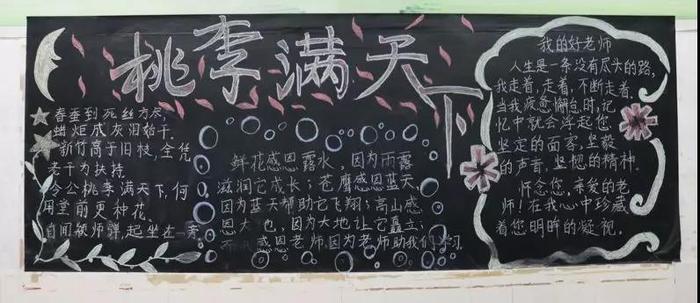 桃李满天下
春蚕到死丝方尽,
蜡炬成灰泪始干.
新竹高于旧枝,全凭
老干为扶持.
令公桃李满天下,何
用堂前更种花.
自闻颖师弹,起坐在一旁.
鲜花感恩露水,因为雨露
滋润它成长;苍鹰感恩蓝天,
因为蓝天帮助它飞翔;高山感
恩大地,因为大地让它矗立;
感恩老师,因为老师助我们
我的好老师
人生是一条没有尽头的路,
我走着,走着,不断走着.
当我疲惫懈怠时,记
忆中就会浮起您
坚定的面容,坚毅
的声音,坚韧的精神.
怀念您,亲爱的老
师!在我心中珍藏
着您明眸的凝视.